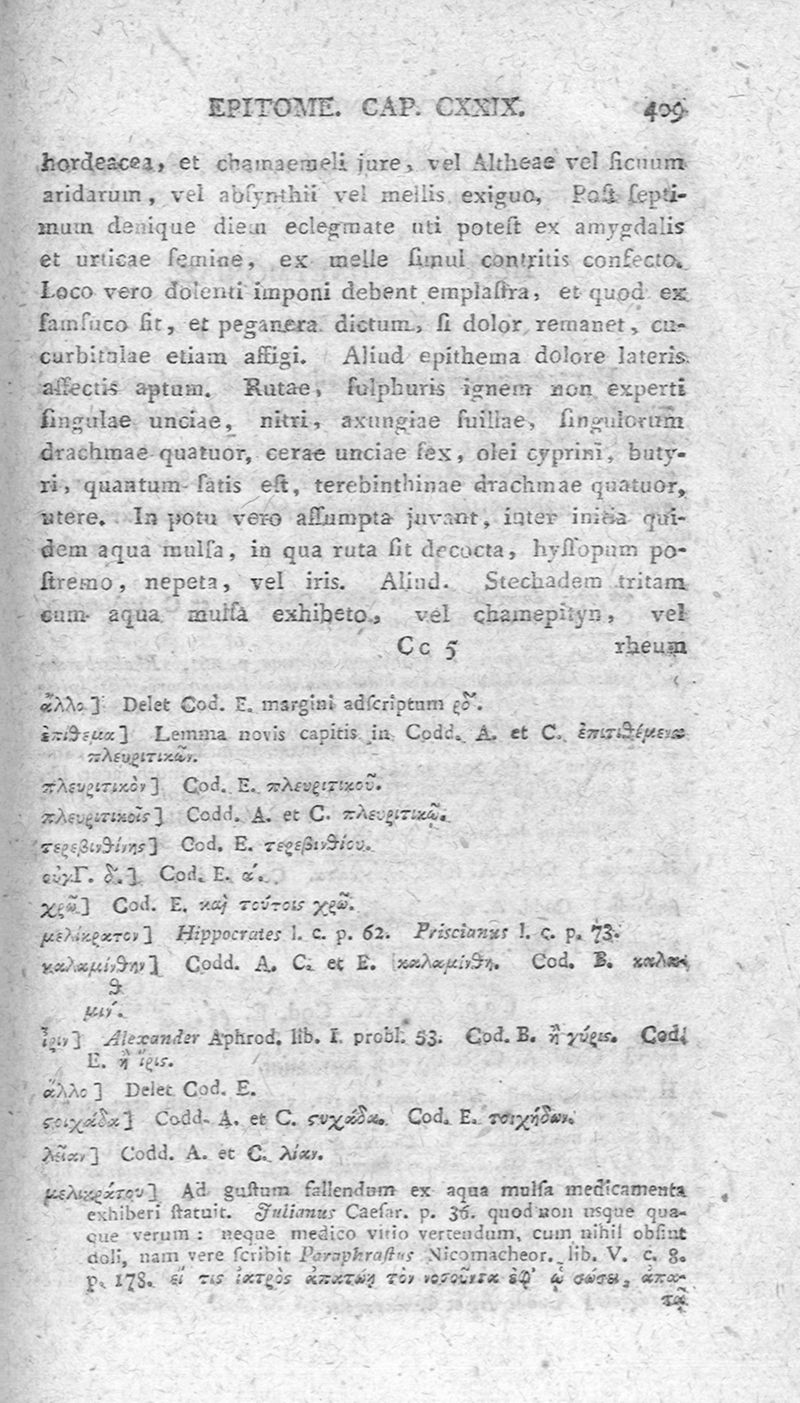 EPITOME. CAP. CXXIX. 409
hordeacea, et chamaemeli jure, vel Altheae vel ſicuum
aridarum, vel abſynthii vel mellis exiguo, Poſt ſepti-
mum denique diem eclegmate uti poteſt ex amygdalis
et urticae ſemine, ex melle ſimul contritis confecto.
Loco vero dolenti imponi debent emplaſtra, et quod ex
ſamſuco ſit, et peganera dictum, ſi dolor remanet, cu-
curbitulae etiam affigi. Aliud epithema dolore lateris
affectis aptum. Rutae, ſulphuris ignem non experti
ſingulae unciae, nitri, axungiae ſuillae, ſingulorum
drachmae quatuor, cerae unciae ſex, olei cyprini, buty-
ri, quantum ſatis eſt, terebinthinae drachmae quatuor,
utere. In potu vero aſſumpta juvant, inter initia qui-
dem aqua mulſa, in qua ruta ſit decocta, hyſſopum po-
ſtremo, nepeta, vel iris. Aliud. Stechadem tritam
cum aqua mulſa exhibeto, vel chamepityn, vel
Cc 5 rheum
ἄλλο] Delet Cod. E. margini adſcriptum ϱδ´.
ἐπίθεμα] Lemma novis capitis in Codd. A. et C. ἐπιτιθέμενα
πλευϱιτικῶν.
πλευϱιτικὸν] Cod. E. πλευϱιτικοῦ.
πλευϱιτικοῖς] Codd. A. et C. πλευϱιτικῷ.
τεϱεβινθίνης] Cod. E. τεϱεβινθίου.
οὐγΓ. δ´.] Cod. E. α´.
χϱῶ] Cod. E. καὶ τούτοις χϱῶ.
μελίκϱατον] Hippocrates l. c. p. 62. Priscianus l. c. p. 73.
καλαμίνθην] Codd. A. C. et E. καλαμίνθη. Cod. B. καλα-
θ
μιν´.
ἶϱιν] Alexander Aphrod. lib. I. probl. 53. Cod. B. ἢ γύϱις. Cod.
E. ἢ ἴϱις.
ἄλλο] Delet Cod. E.
ϛοιχάδα] Codd. A. et C. ϛυχάδα. Cod. E. τοιχήδων.
λείαν] Codd. A. et C. λίαν.
μελικϱάτου] Ad guſtum fallendum ex aqua mulſa medicamenta
exhiberi ſtatuit. Julianus Caeſar. p. 36. quod non usque qua-
que verum: neque medico vitio vertendum, cum nihil obſint
doli, nam vere ſcribit Paraphraſtus Nicomacheor. lib. V. c. 8.
p. 178. εἴ τις ἰατϱὸς ἀπατώη τὸν νοσοῦντα ἐφ' ᾧ σώσει, ἀπα-
τᾷ